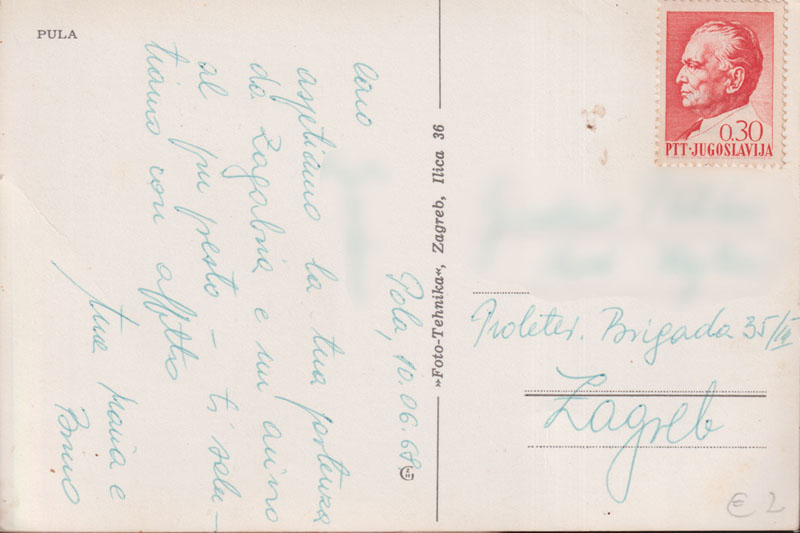 PULA
Pola, 10.06.68
Caro
aspettiamo la tua partenza
da Zagabria e un arrivo
al piu presto - ti salu-
tiamo con affetto
tua Maria e
Bruno
»Foto-Tehnika«, Zagreb, Ilica 36
0.30
PTT·JUGOSLAVIJA
Proleter. Brigada 35/III
Zagreb
€ 2